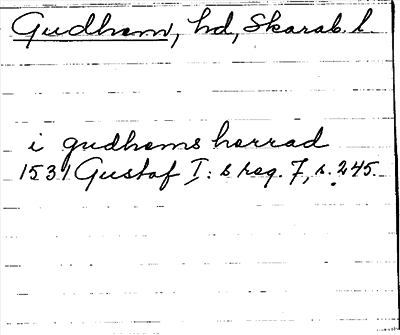 Gudhem, hd, Skarab. l.
i gudhems herrad
1531 Gustaf I: s reg. 7, s. 245.